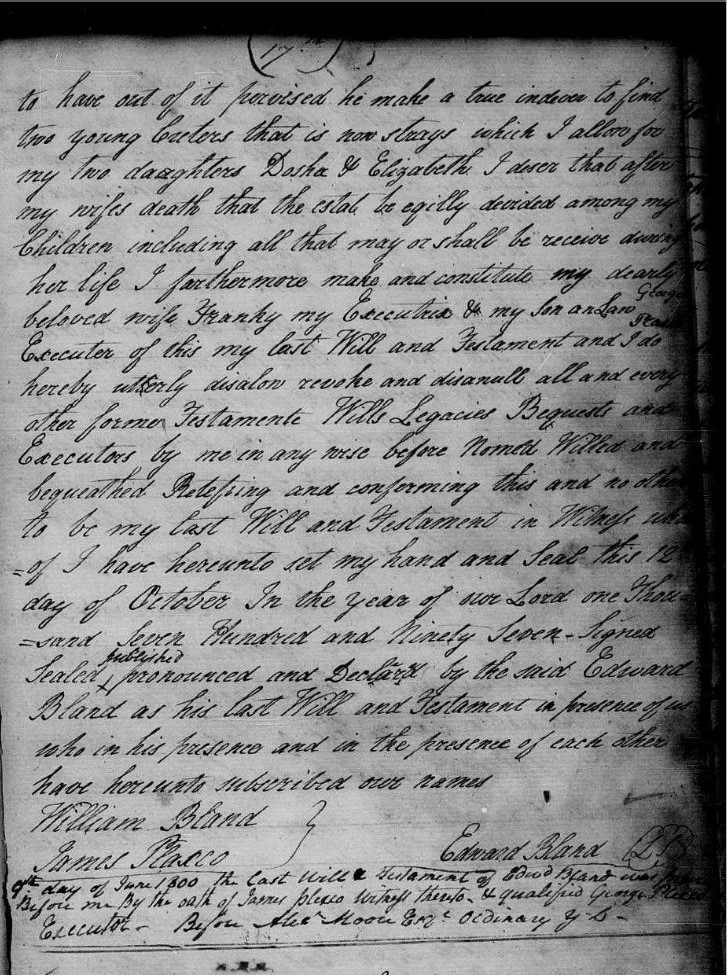 (17th)
to have out of it pervised he make a true indever to find
two young Creters that is now strays which I allow for
my two daughters Dosha & Elizabeth. I deser that after
my wifes death that the estat be egilly divided among my
Children including all that may or shall be receive during
her life I farthermore make and constitute my dearly
beloved wife Franky my Executrix & my Son an Law George
Executer of this my last Will and Testament and I do
hereby utterly disalow revoke and disanull all and every
other forme Testamente Wills Legacies Bequests and
Executors by me in any wise before Nomed Willed and
bequeathed Retefring and conforming this and no other
to be my last Will and Testament in Witness
=of I have hereunto set my hand and Seal this 12
day of October In the year of our Lord one Thou=
=sand Seven Hundred and Ninety Seven - Signed
Sealed published pronounced and Declard by the said Edward
Bland as his last Will and Testament in presence of us
who in his presence and in the presence of each other
have hereunto subscribed our names
William Bland
James Plaxco Edward Bland (LS)
9th day of June 1800 the Last Will & Testament of Edwd Bland was
Before me By the oath of James plexco Witness thereto - & qualified George
Executor - Before Alexr Moore Esqr Ordinary Y D -